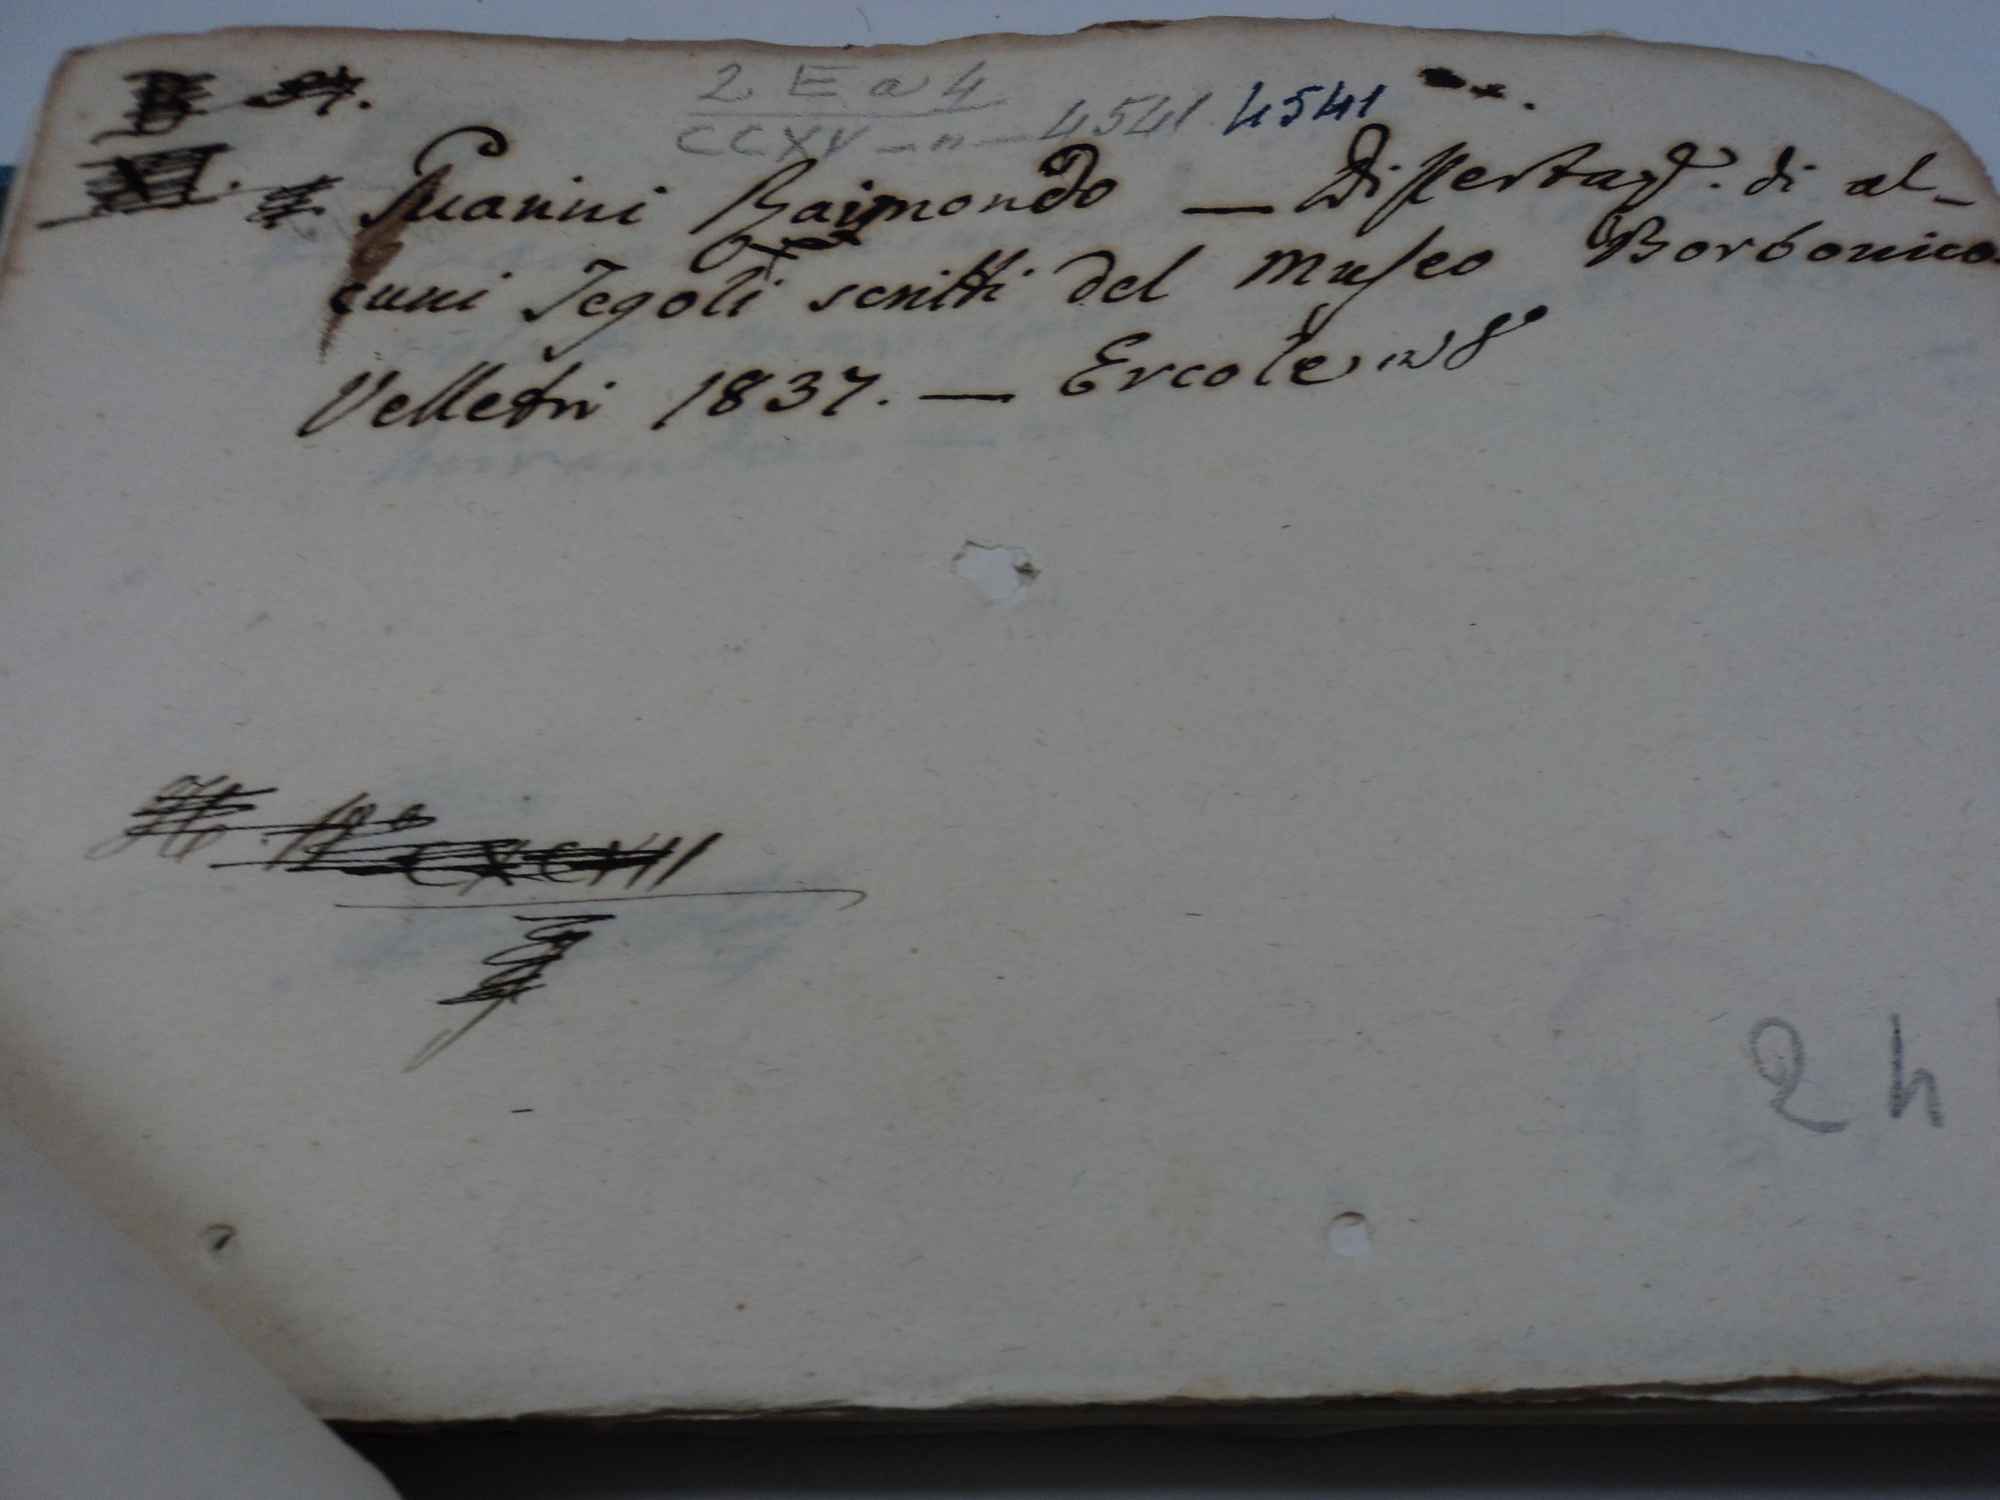 2 E a 4
CCXV - n - 4541 4541
Guarini Raimondo — Dissertaz.e di al-
cuni Tegoli scritti del Museo Borbonico
Velletri 1837. — Ercole in 8°
2 h